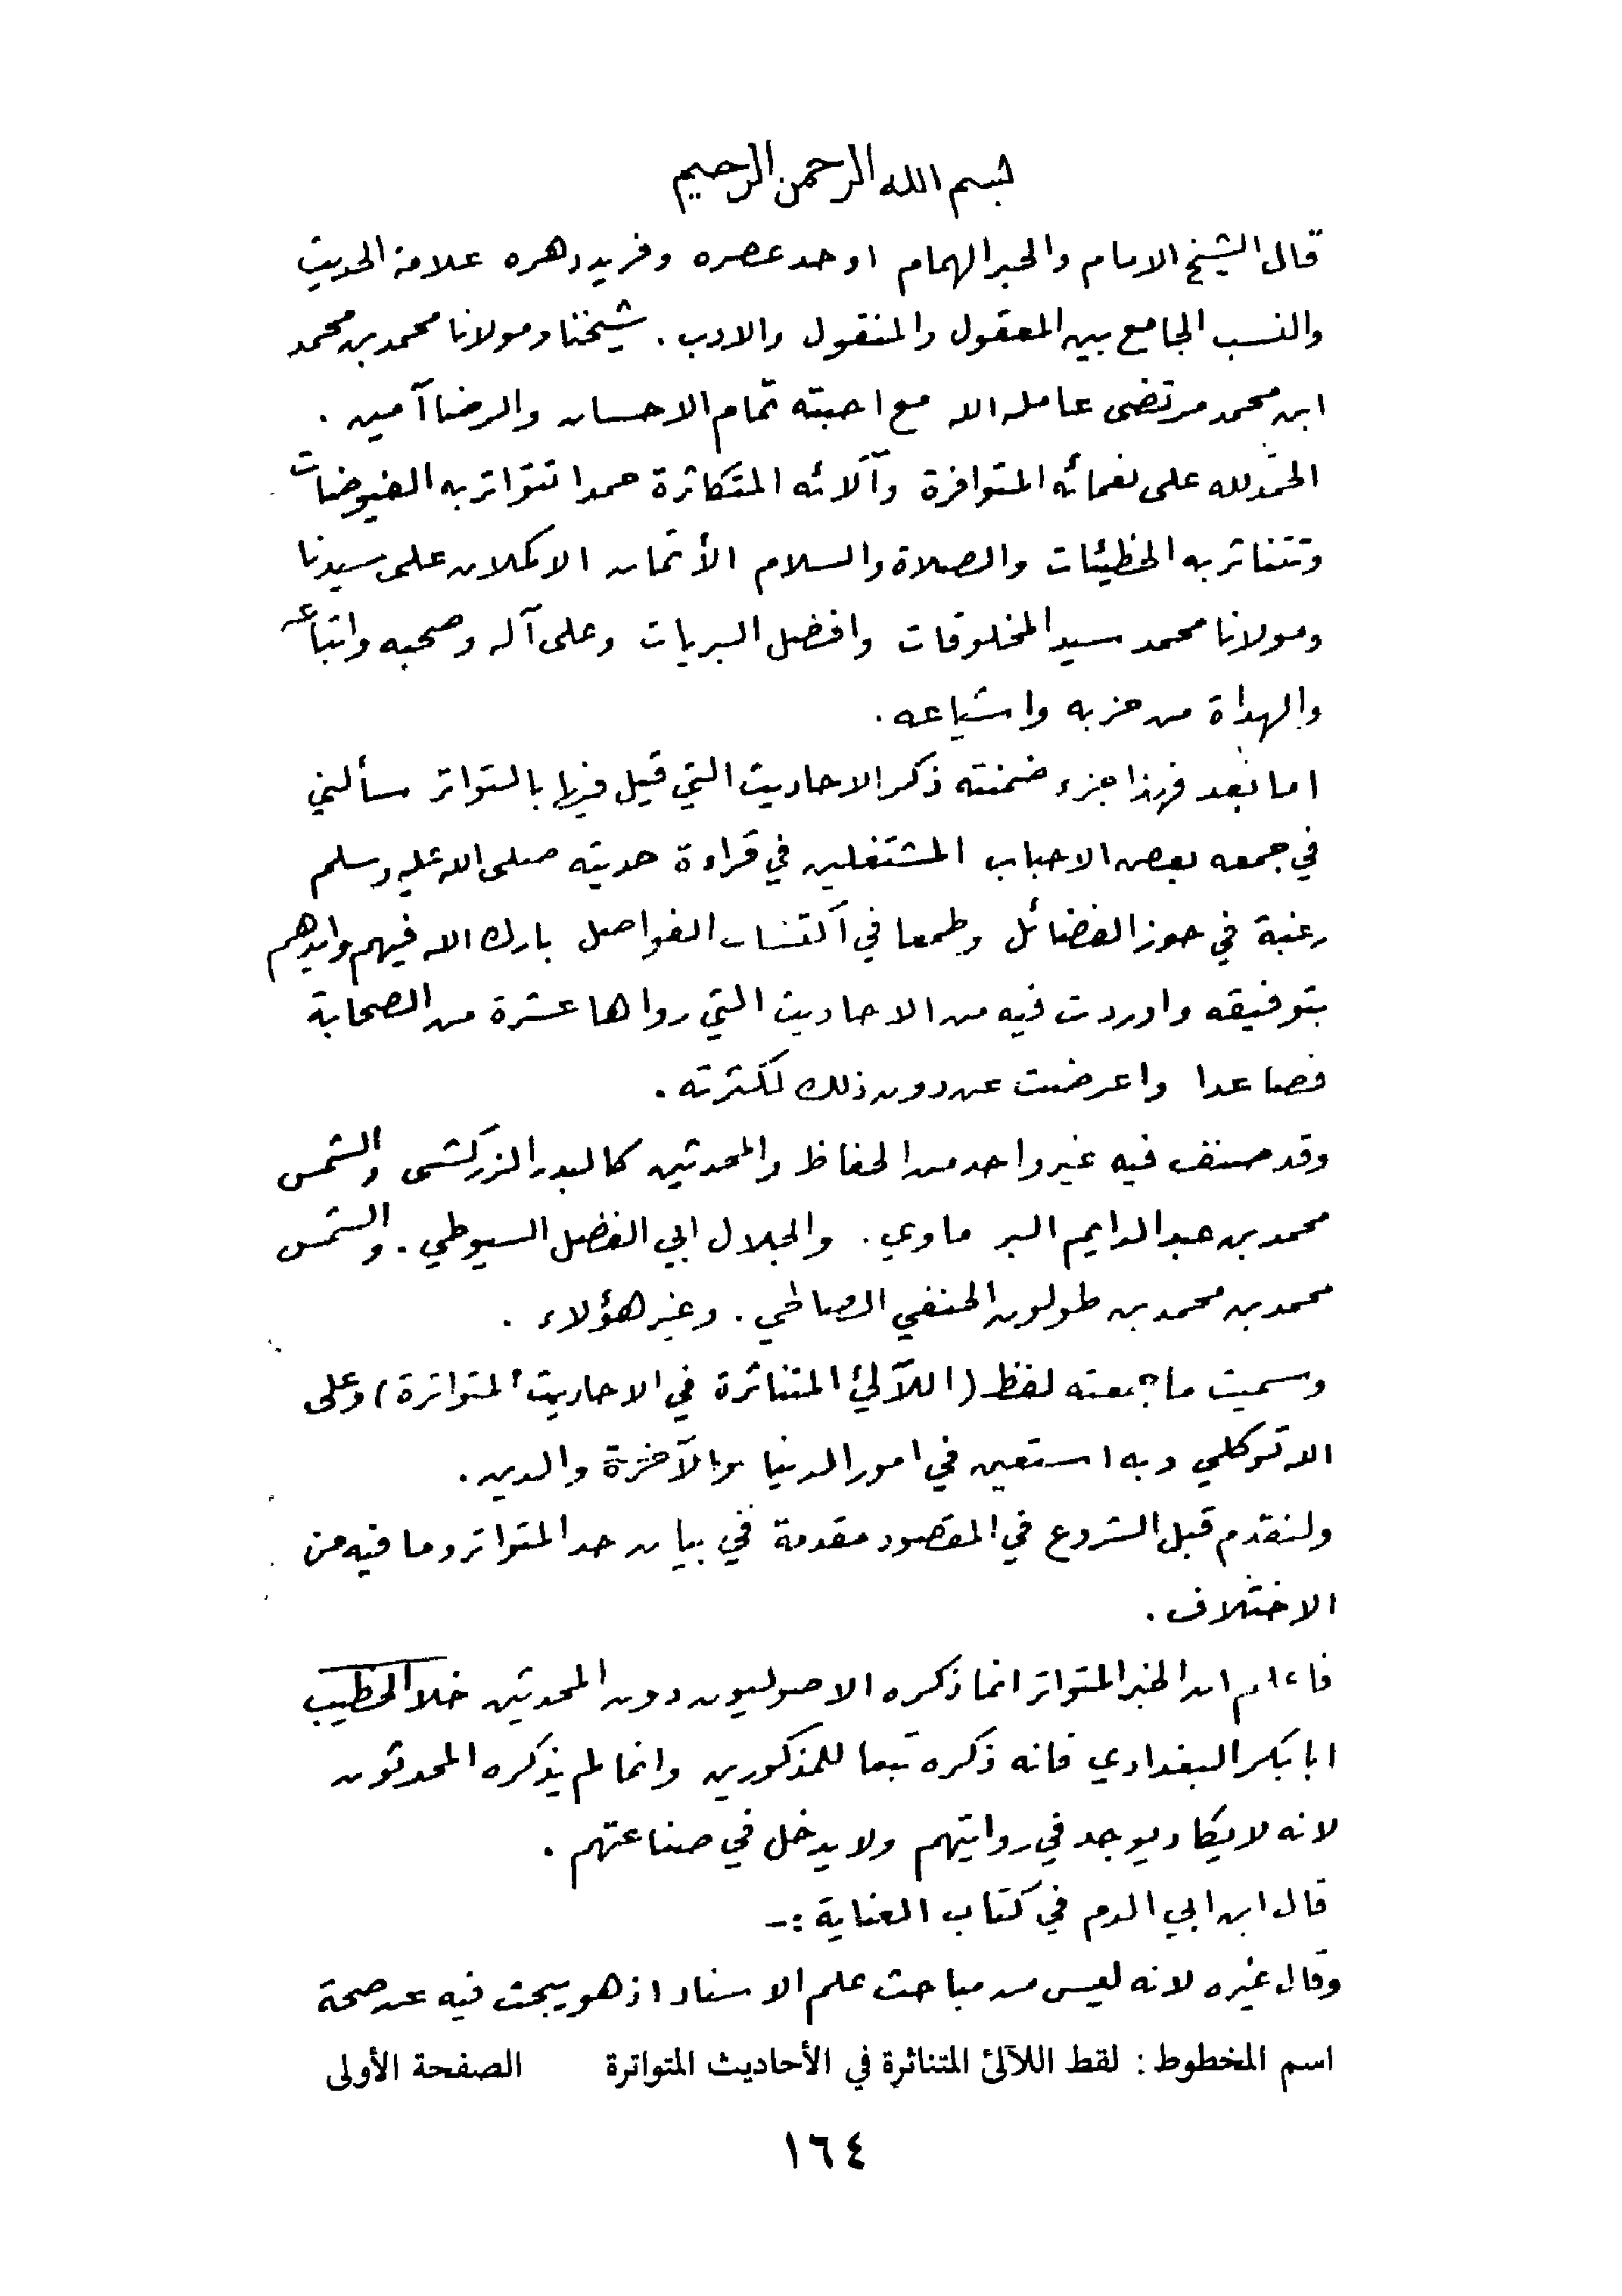 بسم الله الرحمن الرحيم
قال الشيخ الامام والحبر الهمام اوحد عصره وفريد دهره علامة الحديث
والنسب الجامع بين المعقول والمنقول والادب . شيخنا ومولانا محمد بن محمد
ابن محمد مرتضى عامله الله مع احبته تمام الاحسان والرضا آمين .
الحمد لله على نعمائه المتوافرة وآلائه المتكاثرة حمدا تتواتر به الفيوضات
وتتناثر به الخطيئات والصلاة والسلام الأتمان الاكملان على سيدنا
ومولانا محمد سيد المخلوقات وافضل البريات وعلى آله وصحبه واتباعه
والهداة من حزبه واشياعه .
اما بعد فهذا جزء ضمنته ذكر الاحاديث التي قيل فيها بالتواتر سألني
في جمعه بعض الاحباب المشتغلين في قراءة حديثه صلى الله عليه وسلم
رغبة في حوز الفضائل وطمعا في اكتساب الفواصل بارك الله فيهم وايدهم
بتوفيقه واوردت فيه من الاحاديث التي رواها عشرة من الصحابة
فصاعدا واعرضت عن دون ذلك لكثرته .
وقد صنف فيه غير واحد من الحفاظ والمحدثين كالبدر الزركشى والشمس
محمد بن عبد الدايم البر ماوي . والجلال ابي الفضل السيوطي . والشمس
محمد بن محمد بن طولون الحنفي الصالحي . وغير هؤلاء .
وسميت ما جمعته لفظ (اللآلئ المتناثرة في الاحاديث المتواترة) وعلى
الله توكلي وبه استعين في امور الدنيا والآخرة والدين .
ولنقدم قبل الشروع في المقصود مقدمة في بيان حد المتواتر وما فيه من
الاختلاف .
فاعلم ان الخبر المتواتر انما ذكره الاصوليون دون المحدثين خلا الخطيب
ابا بكر البغدادي فانه ذكره تبعا للمذكورين وانما لم يذكره المحدثون
لانه لا يكاد يوجد في روايتهم ولا يدخل في صناعتهم .
قال ابن ابي الدم في كتاب العناية :-
وقال غيره لانه ليس من مباحث علم الاسناد اذ هو يبحث فيه عن صحة
اسم المخطوط : لقط اللآلئ المتناثرة في الأحاديث المتواترة الصفحة الأولى
١٦٤